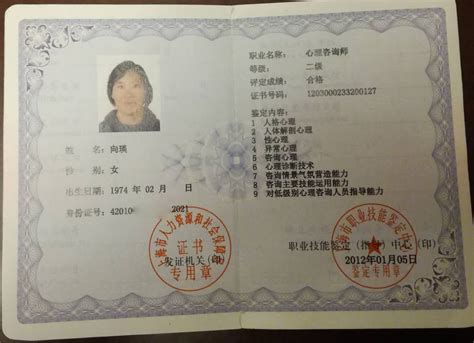 姓 名: 向瑛
性 别: 女
出生日期: 1974 年 02 月 日
身份证号: 42010 2021
上海市人力资源和社会保障局
证书
专用章
发证机关(印)
职业名称: 心理咨询师
等级: 二级
评定成绩: 合格
证书号码: 1203000233200127
鉴定内容:
1 人格心理
2 人体解剖心理
3 性心理
4 异常心理
5 咨询心理
6 心理诊断技术
7 咨询情景气氛营造能力
8 咨询主要技能运用能力
9 对低级别心理咨询人员指导能力
上海市职业技能鉴定中心
职业技能鉴定(指导)中心(印)
2012年01月05日
鉴定专用章